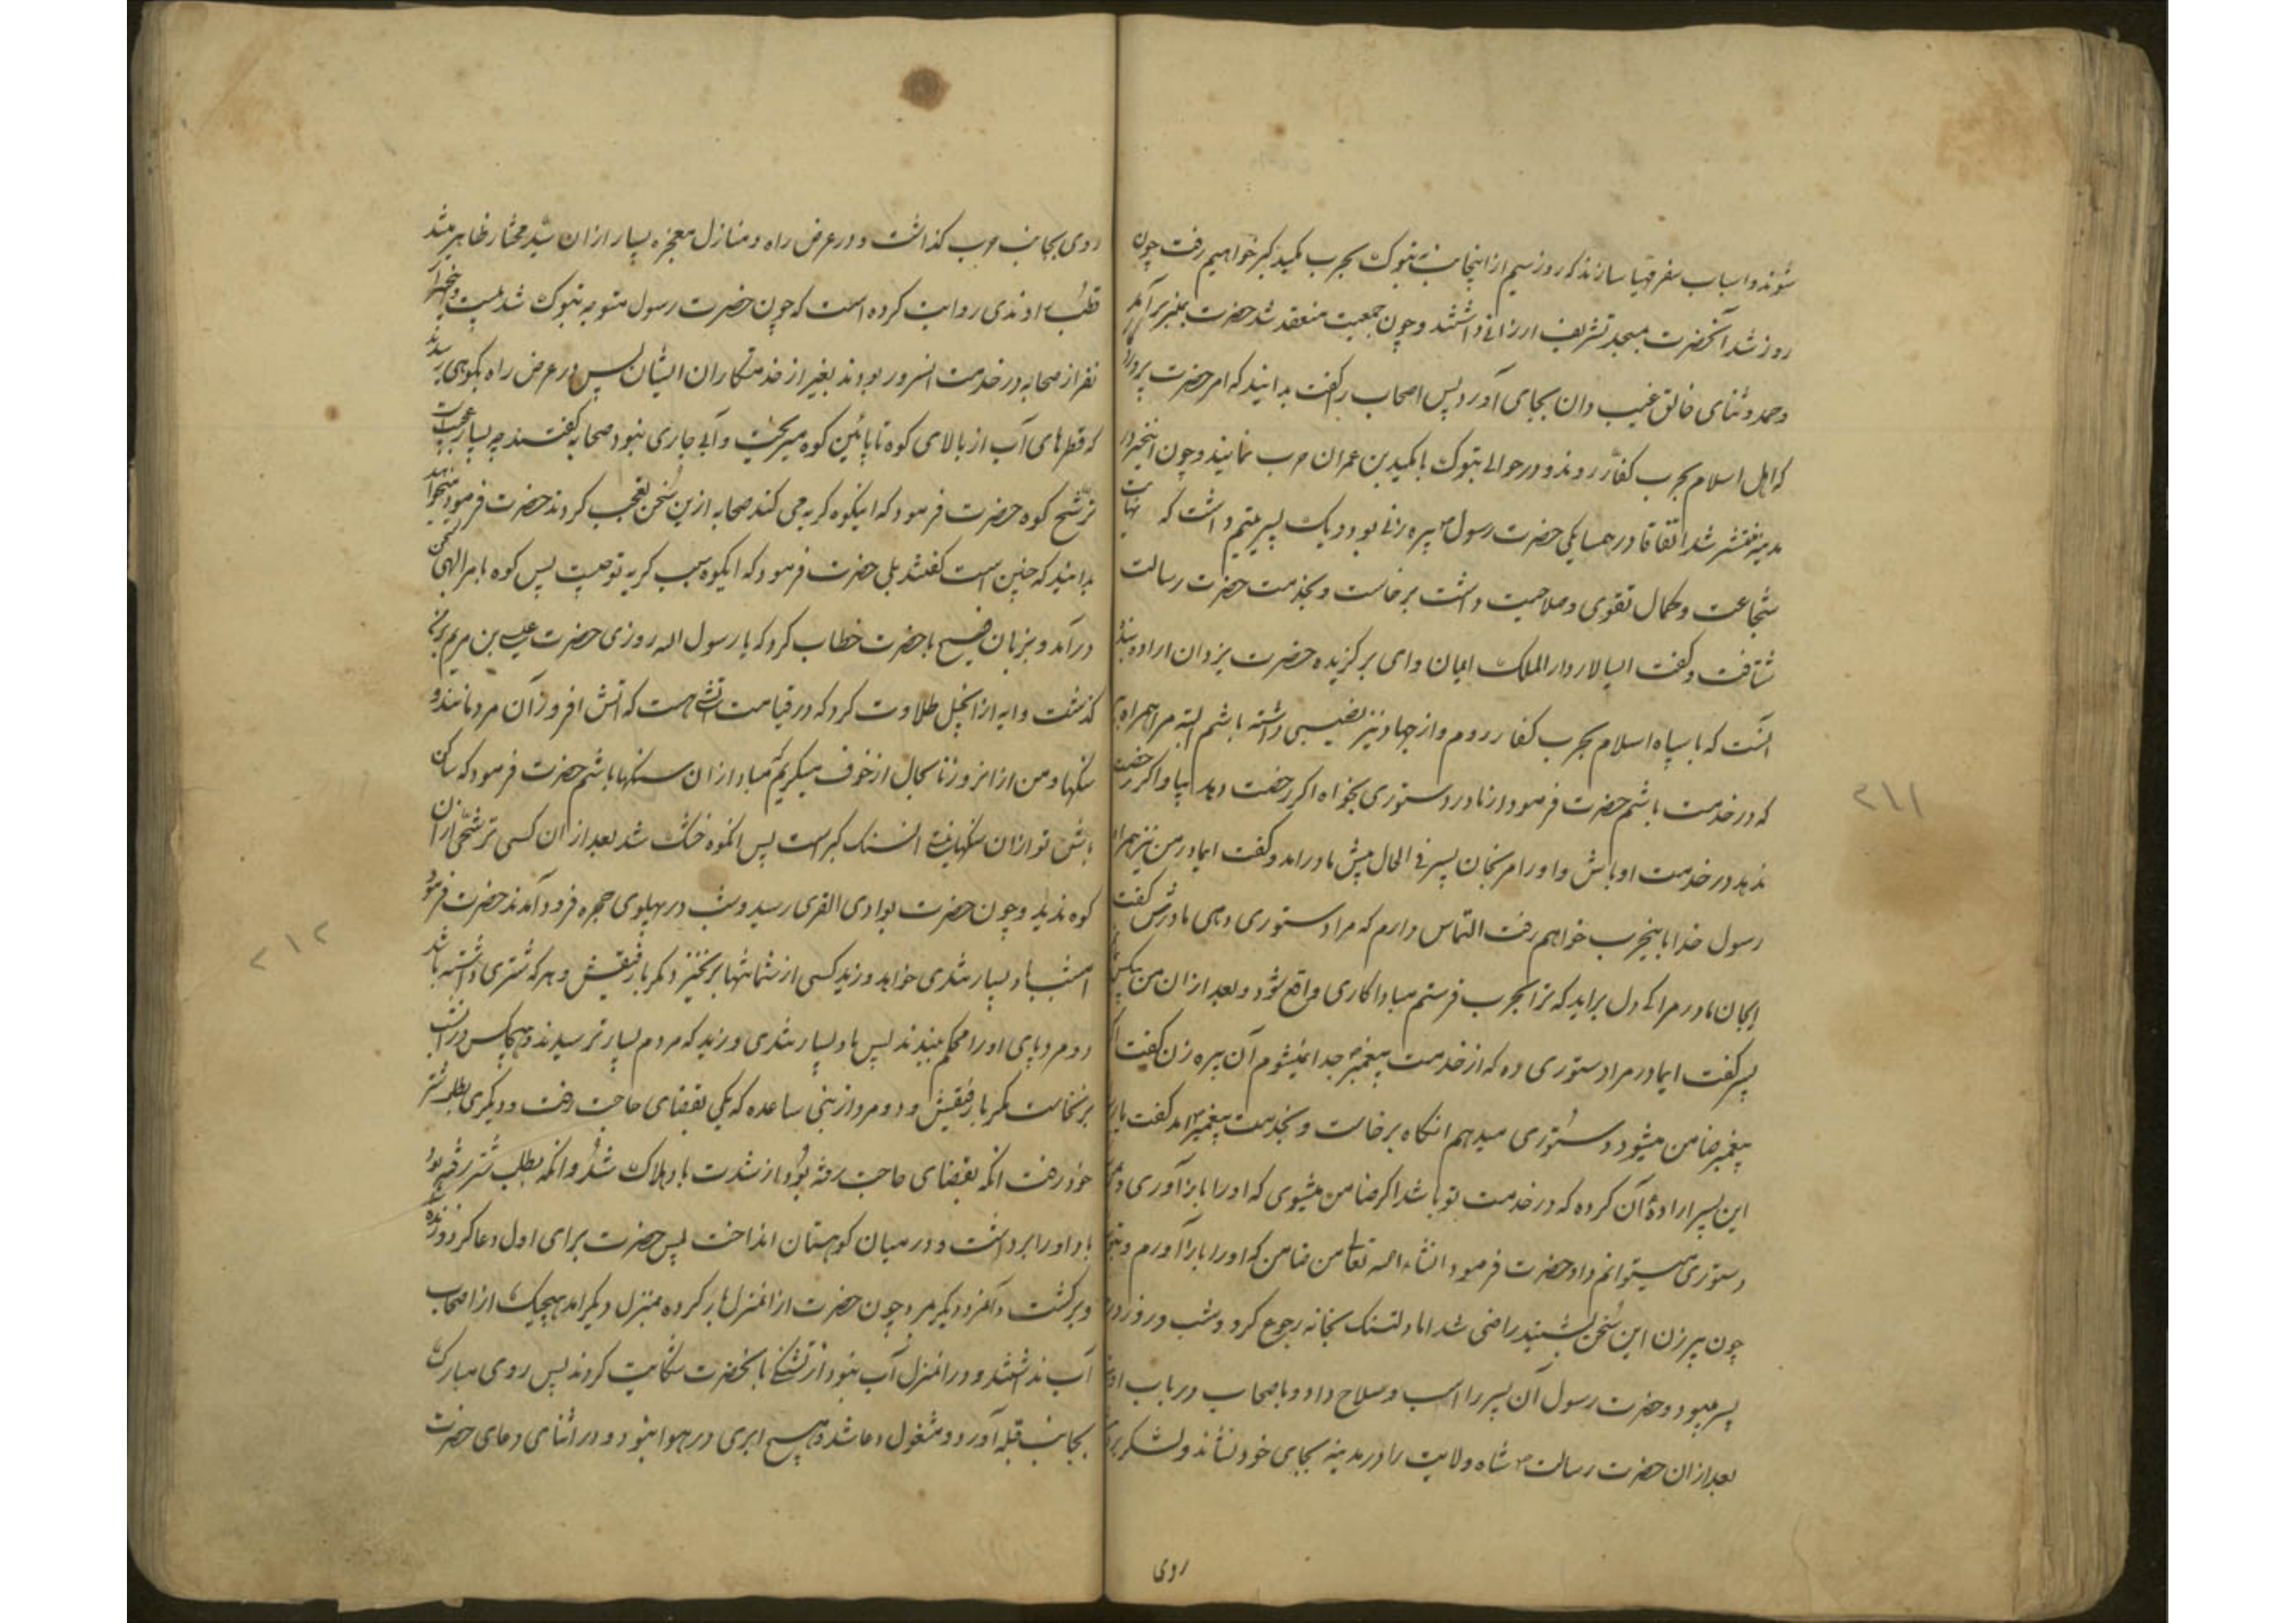 شوند و اسباب سفر مهیا سازند که روز سیم از اینجا بجانب تبوک بحرب کمید کبر خواهیم رفت چون
روز شد آنحضرت بمسجد تشریف ارزانی داشتند و چون جمعیت منعقد شد حضرت بمنبر برآمد
وحمد و ثنای خالق غیب دان بجای آورد پس اصحاب را گفت بدانید که امر حضرت
که اهل اسلام بحرب کفار روند و در حوالی تبوک با کمید بن عمران حرب نمایند و چون اینخبر در
مدینه منتشر شد اتفاقا در همسایکی حضرت رسول پیره زنی بود و یک پسر یتیم داشت که نهایت
شجاعت و کمال تقوی و صلاحیت داشت برخاست و بخدمت حضرت رسالت
شتافت و گفت ایسالار دار الملک ایمان و ای برکزیده حضرت یزدان اراده بنده
انست که با سپاه اسلام بحرب کفار روم و از جهاد نیز نصیبی داشته باشم البته مرا همراه
که در خدمت باشم حضرت فرمود از مادر دستوری بخواه اکر رخصت دهد بیا و اکر رخصت
ندهد در خدمت او باش و او را مرنجان پسر فی الحال پیش مادر امد و گفت ایمادر من نیز همراه
رسول خدا باینحرب خواهم رفت التماس دارم که مرا دستوری دهی مادرش گفت
ایجان مادر مرا کی دل براید که ترا بحرب فرستم مبادا کاری واقع شود و بعد از ان من بیکس
پسر گفت ایمادر مرا دستوری ده که از خدمت پیغمبر جدا نمیشوم آن پیره زن گفت اگر
پیغمبر ضامن میشود دستوری میدهم انکاه برخاست و بخدمت پیغمبر امد گفت
این پسر اراده آن کرده که در خدمت تو باشد اکر ضامن میشوی که او را باز آوری
دستوری میتوانم داد حضرت فرمود انشاء الله تعالی من ضامن که او را باز آورم
چون پیرزن این سخن بشنید راضی شد اما دلتنک بخانه رجوع کرد و شب و روز در
پسر میبود و حضرت رسول آن پسر را اسب و سلاح داد و باصحاب در باب
بعد از ان حضرت رسالت شاه ولایت را در مدینه بجای خود نشاند و لشکر
روی
۲۱۱
روی بجانب حرب کذاشت و در عرض راه و منازل معجزه بسیار از ان سید مختار ظاهر شد
قطب راوندی روایت کرده است که چون حضرت رسول متوجه تبوک شد بیست و پنجهزار
نفر از صحابه در خدمت انسرور بودند بغیر از خدمتکاران ایشان پس در عرض راه بکوهی رسیدند
که قطرهای آب از بالای کوه تا پائین کوه میریخت و آبی جاری نبود صحابه گفتند چه بسیار عجیبست
ترشح کوه حضرت فرمود که اینکوه کریه می کند صحابه ازین سخن تعجب کردند حضرت فرمود میخواهید
بدانید که چنین است گفتند بلی حضرت فرمود که ایکوه سبب کریه تو چیست پس کوه بامر الهی بسخن
درآمد و بزبان فصیح باحضرت خطاب کرد که یا رسول اله روزی حضرت عیسی بن مریم بر من
کذشت و ایه از انجیل تلاوت کرد که در قیامت آتشی هست که آتش افروز آن مردمانند و
سنکها و من از انروز تا بحال از خوف میکریم که مبادا از ان سنکها باشم حضرت فرمود که ساکن
باش تو از ان سنکها نیستی انسنک کبریت پس انکوه خشک شد بعد از ان کسی ترشحی از ان
کوه ندید و چون حضرت بوادی القری رسید و شب در پهلوی حجره فرود آمدند حضرت فرمود
امشب باد بسیار تندی خواهد وزید کسی از شما تنها برنخیزد مکر با رفیقش و هر که شتری داشته باشد
دو مرد پای او را محکم ببندند پس باد بسیار تندی وزید که مردم بسیار ترسیدند و هیچکس در انشب
برنخاست مکر با رفیقش و دو مرد از بنی ساعده که یکی بقضای حاجت رفت و دیکری بطلب شتر
خود رفت انکه بقضای حاجت رفته بود از شدت باد هلاک شد و انکه بطلب شتر رفته بود
باد او را برداشت و در میان کوهستان انداخت پس حضرت برای اول دعا کرد و زنده
و برکشت و آمرد دیکر مرد چون حضرت از انمنزل بار کرده بمنزل دیکر امد هیچیک از اصحاب
آب نداشتند و در انمنزل آب نبود از تشنکی بانحضرت شکایت کردند پس روی مبارک
بجانب قبله آورد و مشغول دعا شد و هیچ ابری در هوا نبود و در اثنای دعای حضرت
۲۱۲